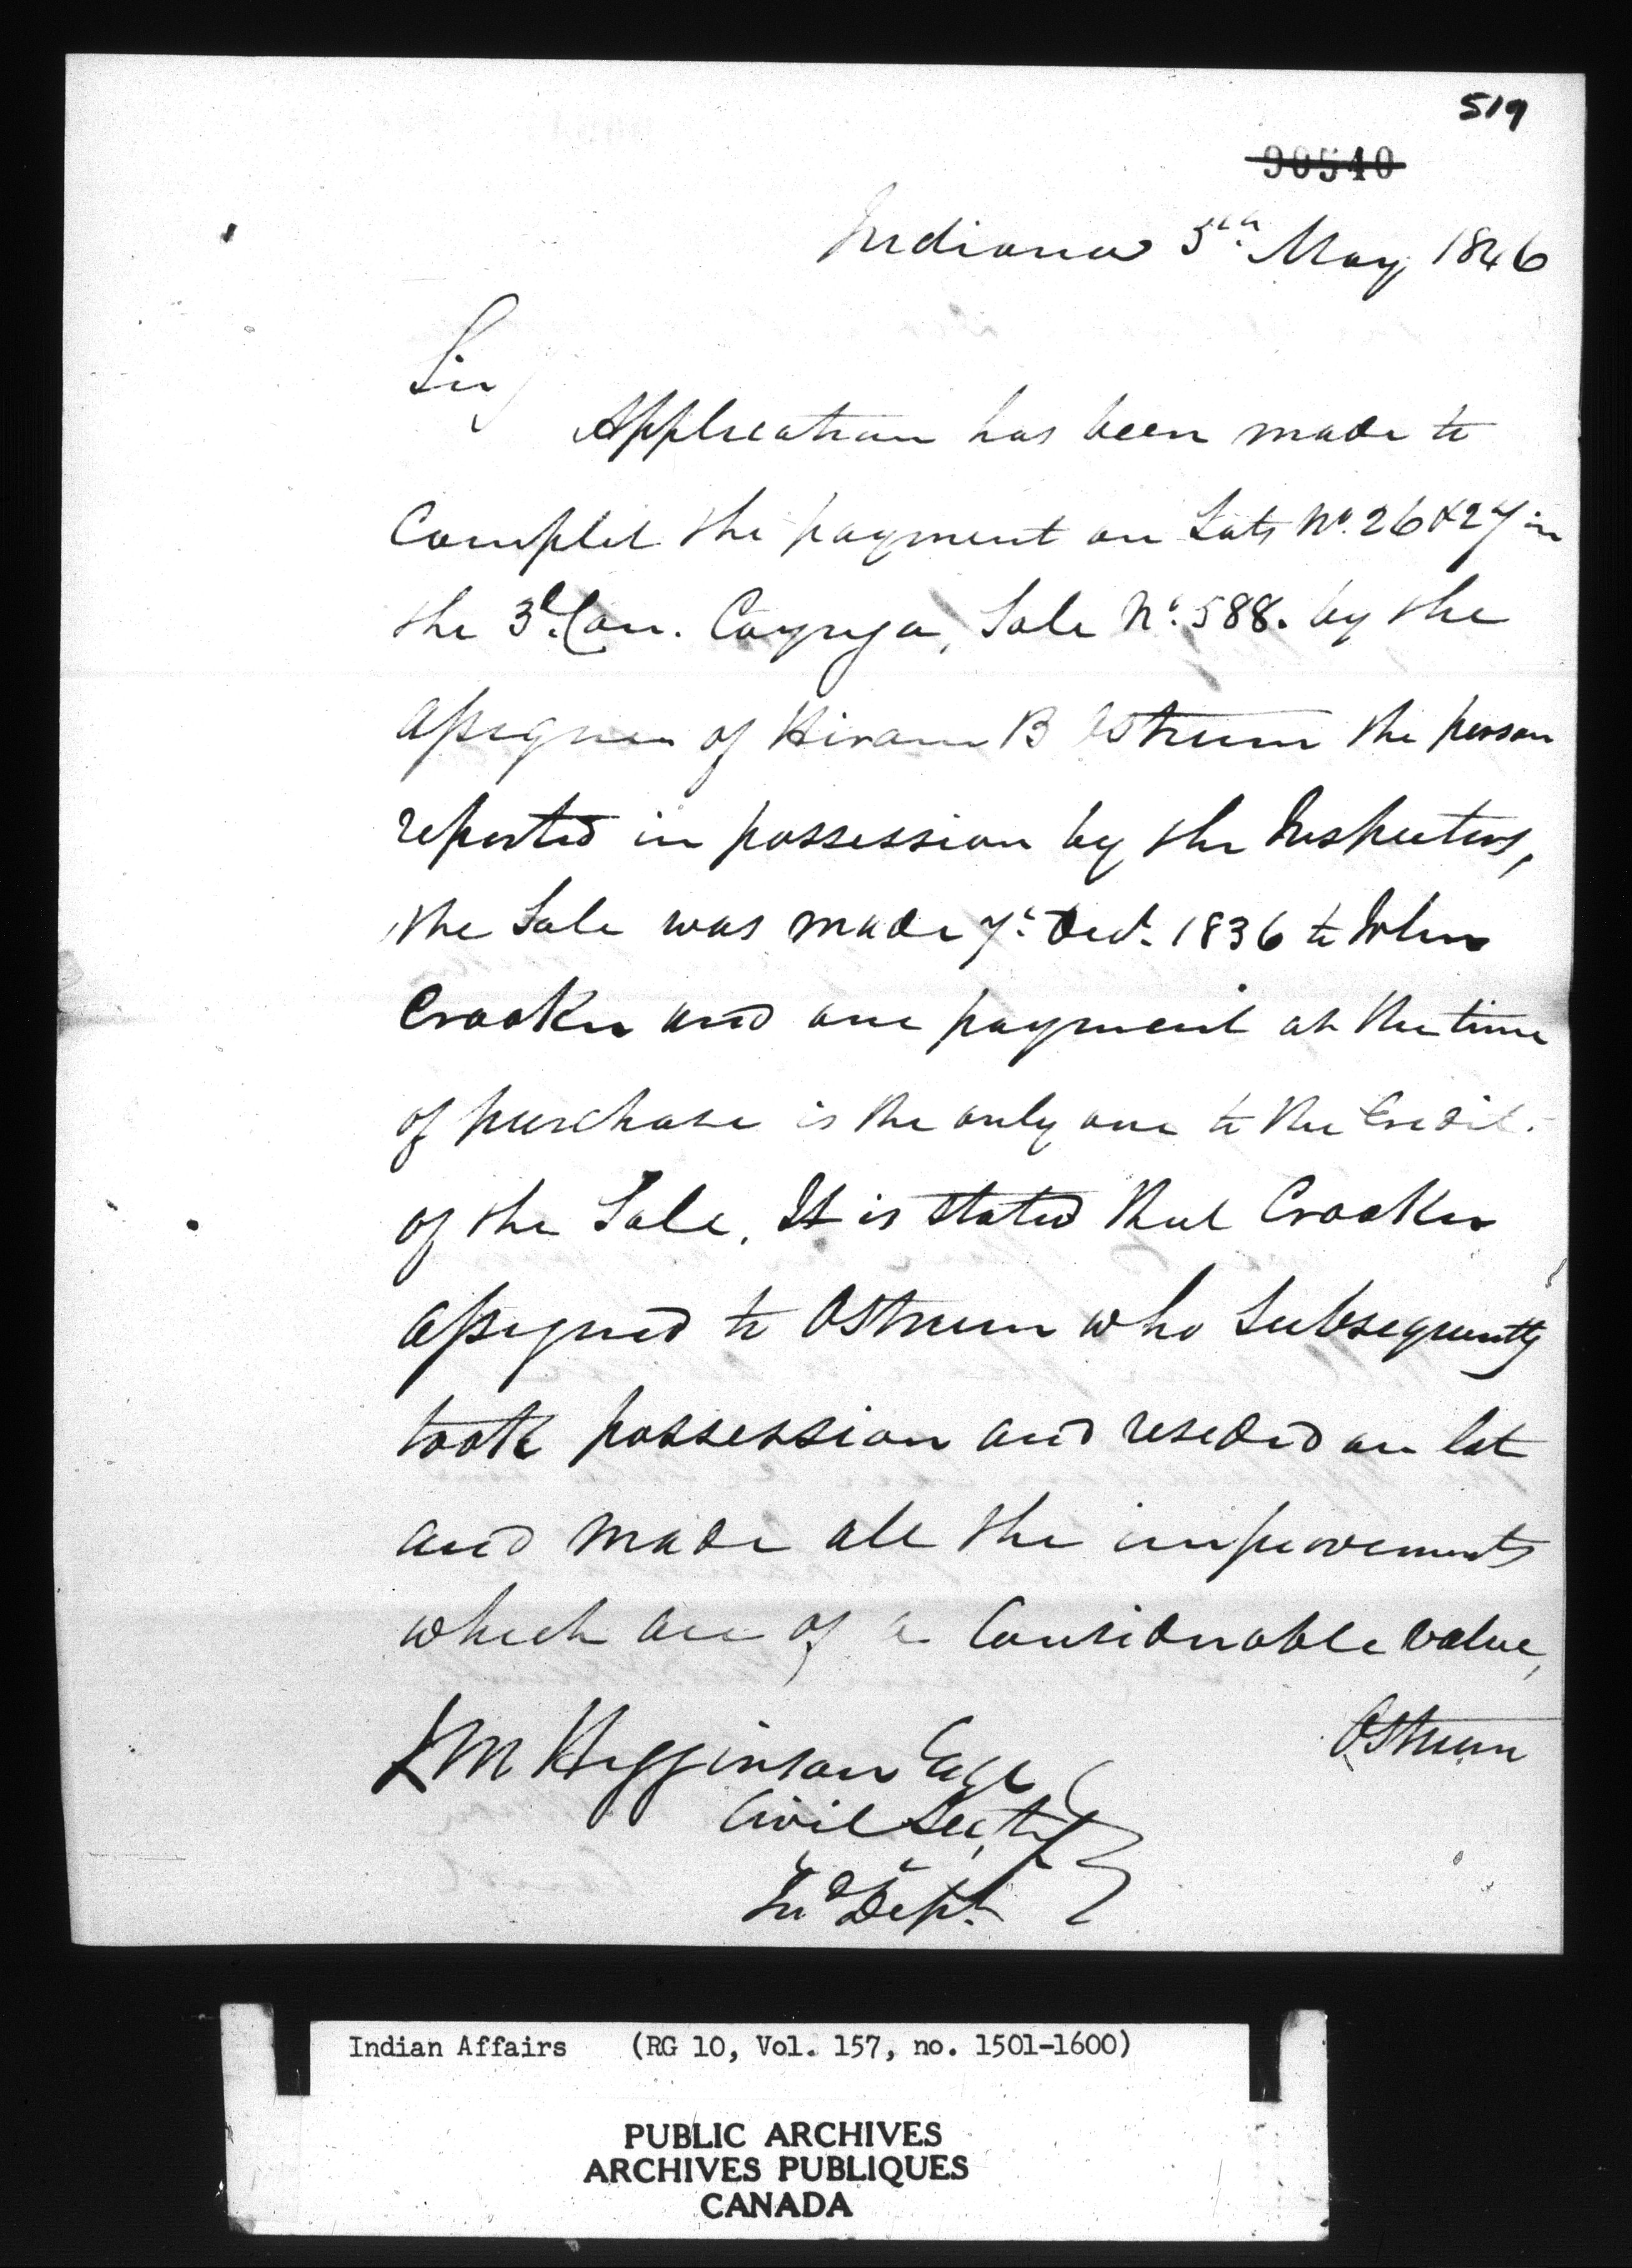 519
90540
Indiana 5th May 1846
Sir
Application has been made to
Complet the payment on Lots No. 26 & 27 in
the 3d. Con. Cayuga, Sale No. 588. by the
assignee of Hiram B Ostrum the person
reported in possession by the Inspectors,
the Sale was made 7th 1836 to John
Crooker and one payment at the time
of purchase is the only one to the Credit
of the Sale. It is stated that Crooker
assigned to Ostrum who Subsequently
took possession and resided on lot
and made all the improvements
which are of a Considerable value,
Ostrum
J M Higginson Esqr
Civil Secty
Ind Dept.
Indian Affairs (RG 10, Vol. 157, no. 1501-1600)
PUBLIC ARCHIVES
ARCHIVES PUBLIQUES
CANADA